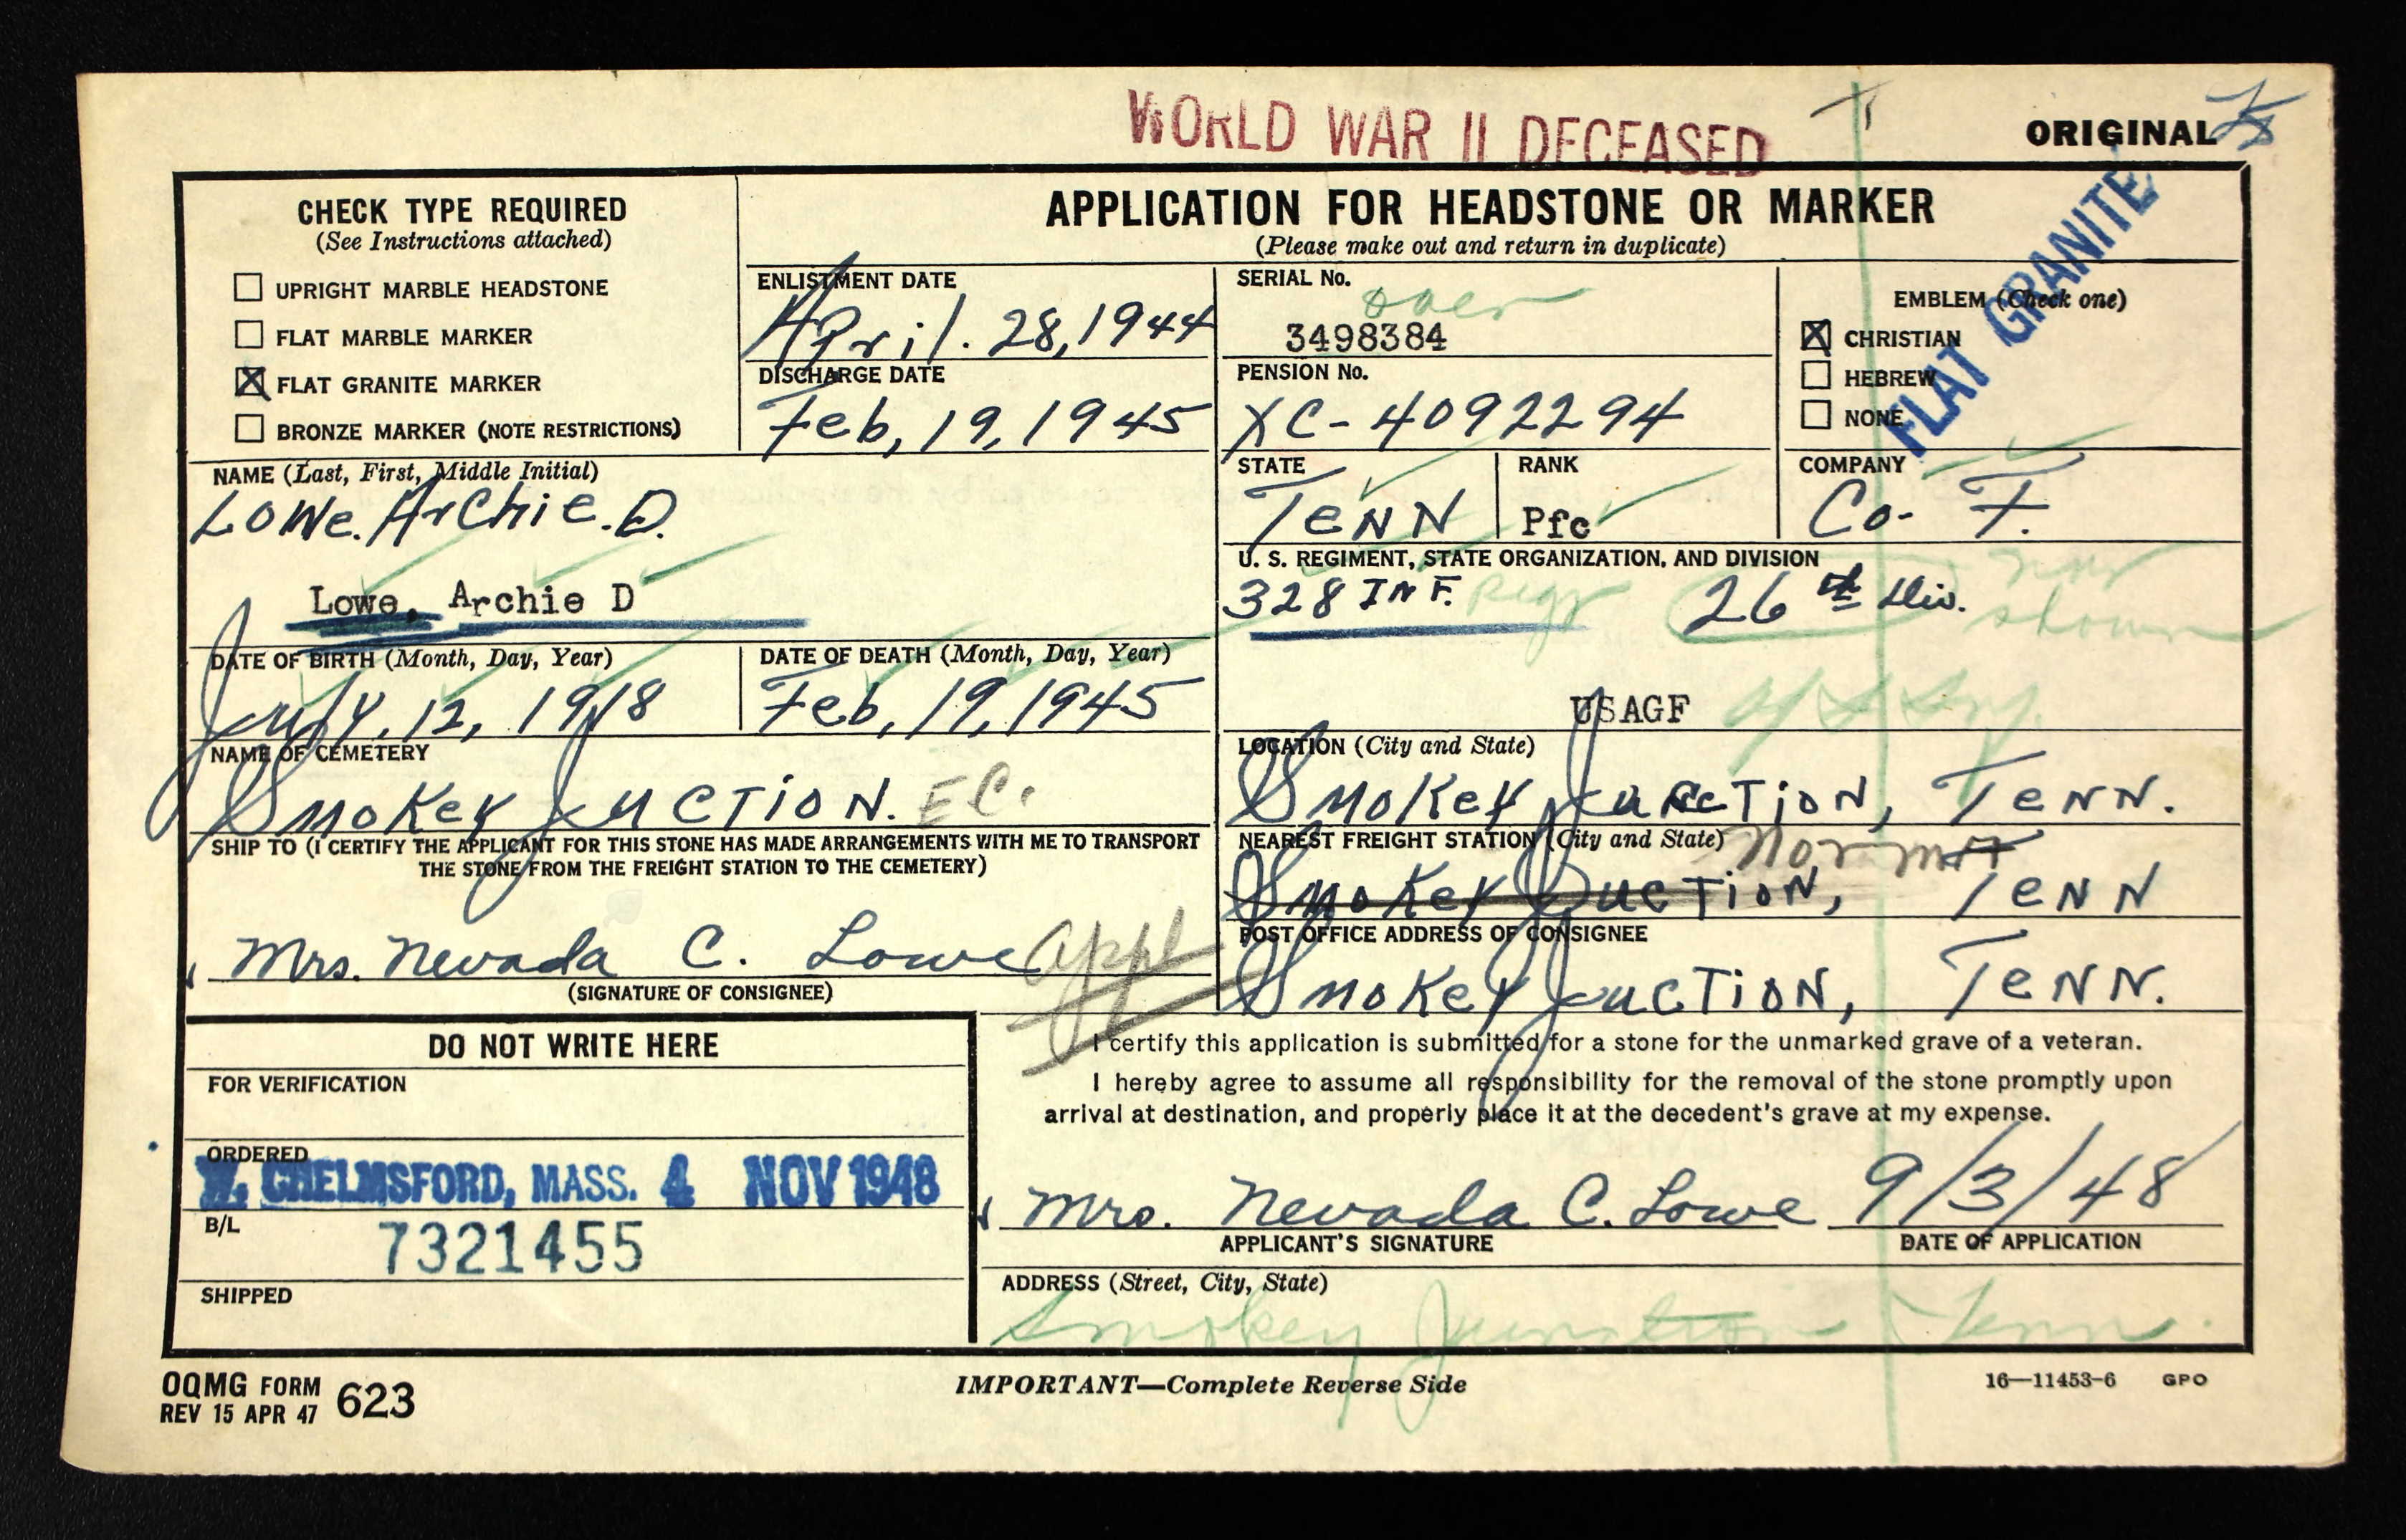 WORLD WAR II DECEASED
ORIGINAL
CHECK TYPE REQUIRED
(See Instructions attached)
UPRIGHT MARBLE HEADSTONE
FLAT MARBLE MARKER
FLAT GRANITE MARKER
BRONZE MARKER (NOTE RESTRICTIONS)
APPLICATION FOR HEADSTONE OR MARKER
(Please make out and return in duplicate)
ENLISTMENT DATE
April. 28, 1944
DISCHARGE DATE
Feb, 19, 1945
SERIAL No.
over
3498384
PENSION No.
XC-4092294
EMBLEM (Check one)
CHRISTIAN
HEBREW
NONE
FLAT GRANITE
NAME (Last, First, Middle Initial)
Lowe. Archie. D.
Lowe, Archie D
STATE
TENN
RANK
Pfc
COMPANY
Co- F.
U. S. REGIMENT, STATE ORGANIZATION, AND DIVISION
328 INF. Regt 26th Div.
shown
USAGF
DATE OF BIRTH (Month, Day, Year)
July. 12, 1918
DATE OF DEATH (Month, Day, Year)
Feb, 19, 1945
NAME OF CEMETERY
Smokey Juction. EC.
LOCATION (City and State)
Smokey Juction, Tenn.
SHIP TO (I CERTIFY THE APPLICANT FOR THIS STONE HAS MADE ARRANGEMENTS WITH ME TO TRANSPORT
THE STONE FROM THE FREIGHT STATION TO THE CEMETERY)
Mrs. Nevada C. Lowe appl
(SIGNATURE OF CONSIGNEE)
NEAREST FREIGHT STATION (City and State)
Norma
Smokey Juction, Tenn
POST OFFICE ADDRESS OF CONSIGNEE
Smokey Juction, Tenn.
DO NOT WRITE HERE
FOR VERIFICATION
ORDERED
W. CHELMSFORD, MASS. 4 NOV 1948
B/L
7321455
SHIPPED
I certify this application is submitted for a stone for the unmarked grave of a veteran.
I hereby agree to assume all responsibility for the removal of the stone promptly upon
arrival at destination, and properly place it at the decedent's grave at my expense.
Mrs. Nevada C. Lowe 9/3/48
APPLICANT'S SIGNATURE
DATE OF APPLICATION
ADDRESS (Street, City, State)
Smokey Junction Tenn.
OQMG FORM 623
REV 15 APR 47
IMPORTANT—Complete Reverse Side
16—11453-6 GPO